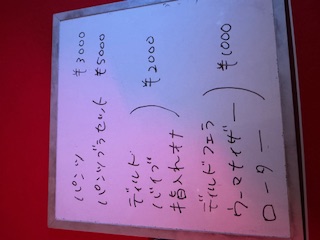 パンツ ¥3000
パンツブラセット ¥5000
ディルド
バイブ ) ¥2000
指入れオナ
ディルドフェラ
ウーマナイザー ) ¥1000
ローター